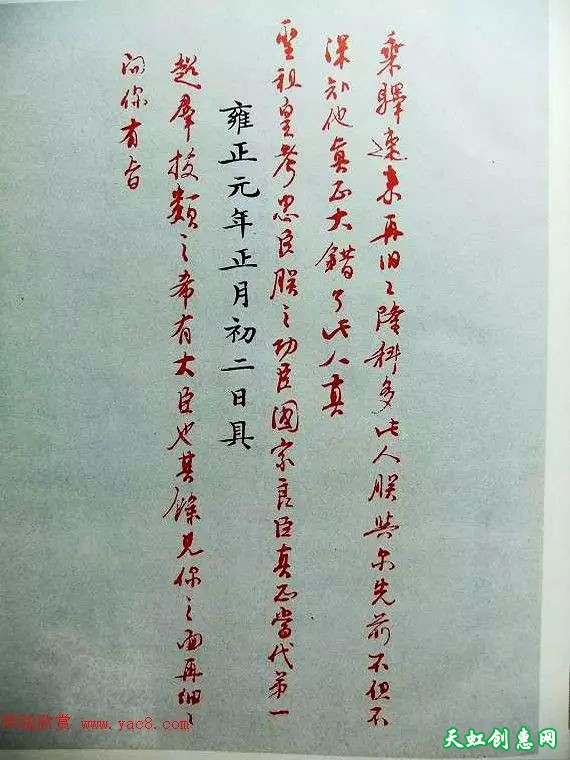 乘驛速来再舅舅隆科多此人朕與尔先前不但不
深知他真正大錯了此人真
聖祖皇考忠臣朕之功臣國家良臣真正當代第一
雍正元年正月初二日具
超群拔類之希有大臣也其餘見你之面再細細
问你有旨
书法欣赏 www.yac8.com
天虹创惠网